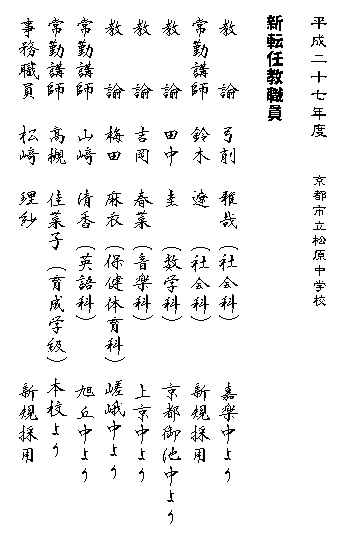 平成二十七年度　京都市立松原中学校
新転任教職員
教諭　弓削　雅哉（社会科）　嘉楽中より
常勤講師　鈴木　遼（社会科）　新規採用
教諭　田中　圭（数学科）　京都御池中より
教諭　吉岡　春菜（音楽科）　上京中より
教諭　梅田　麻衣（保健体育科）　嵯峨中より
常勤講師　山崎　清香（英語科）　旭丘中より
常勤講師　高槻　佳菜子（育成学級）　本校より
事務職員　松崎　理紗　新規採用